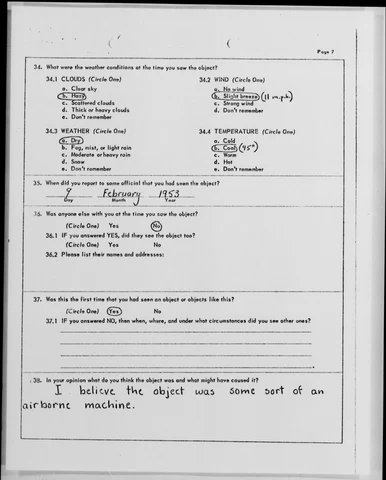 Page 7
34. What were the weather conditions at the time you saw the object?
34.1 CLOUDS (Circle One) 34.2 WIND (Circle One)
a. Clear sky a. No wind
b. Hazy b. Slight breeze (11 m.p.h)
c. Scattered clouds c. Strong wind
d. Thick or heavy clouds d. Don't remember
e. Don't remember
34.3 WEATHER (Circle One) 34.4 TEMPERATURE (Circle One)
a. Dry a. Cold
b. Fog, mist, or light rain b. Cool (45°)
c. Moderate or heavy rain c. Warm
d. Snow d. Hot
e. Don't remember e. Don't remember
35. When did you report to some official that you had seen the object?
9 February 1953
Day Month Year
36. Was anyone else with you at the time you saw the object?
(Circle One) Yes No
36.1 IF you answered YES, did they see the object too?
(Circle One) Yes No
36.2 Please list their names and addresses:
37. Was this the first time that you had seen an object or objects like this?
(Circle One) Yes No
37.1 IF you answered NO, then when, where, and under what circumstances did you see other ones?
38. In your opinion what do you think the object was and what might have caused it?
I believe the object was some sort of an
airborne machine.